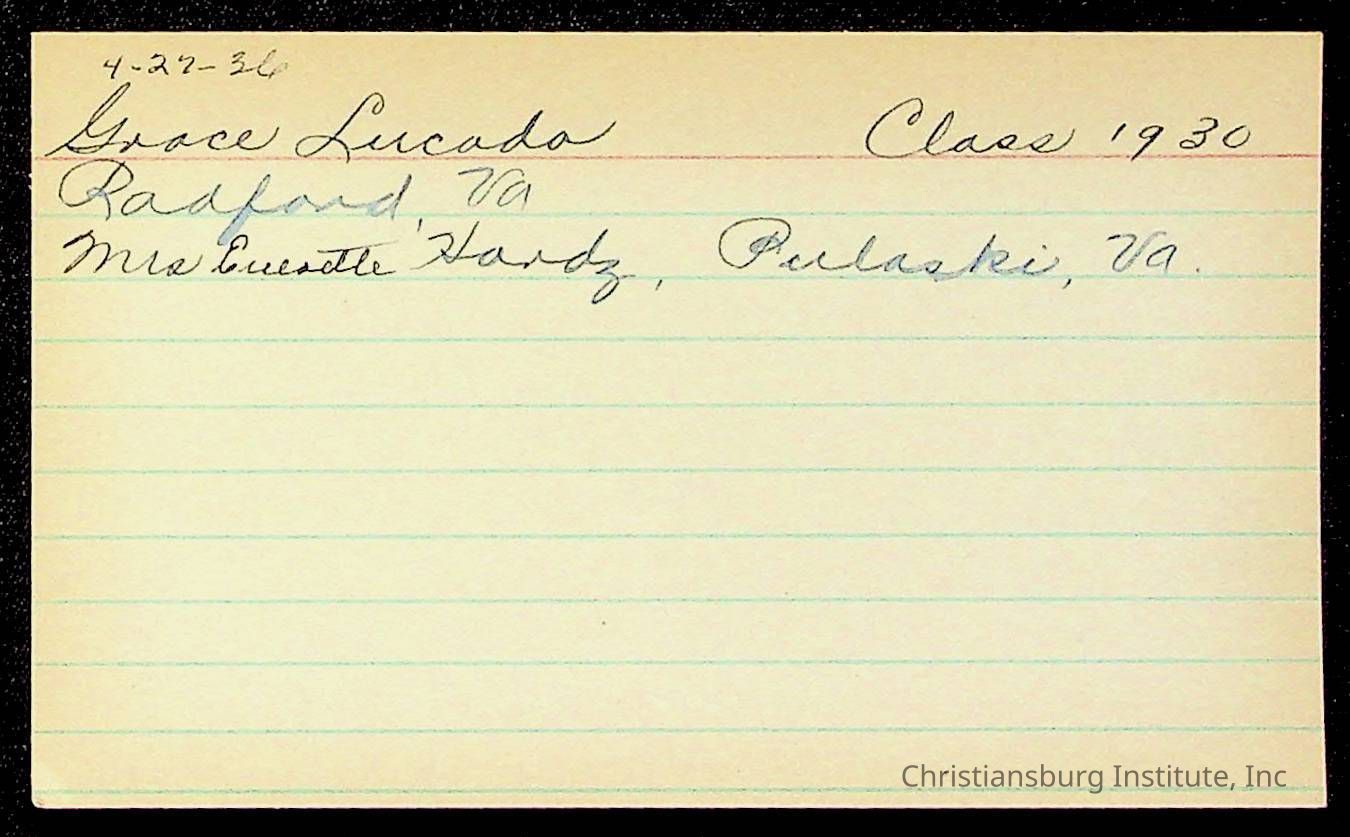 4-27-36
Grace Lucado Class 1930
Radford, Va
Mrs Everette Hardy, Pulaski, Va.
Christiansburg Institute, Inc